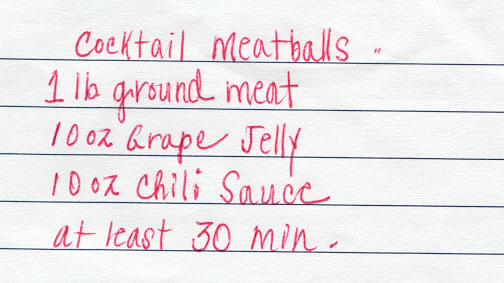 Cocktail meatballs ..
1 lb ground meat
10 oz Grape Jelly
10 oz Chili Sauce
at least 30 min.